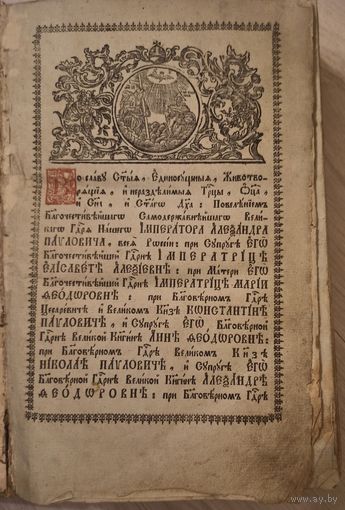 Во славу Ст҃ыѧ, Единосущныѧ, Животво-
рѧщїѧ, и нераздѣлимыѧ Трⷪ҇цы, Ѻц҃а,
и Сн҃а, и Ст҃агѡ Дх҃а: Повелѣнїемъ
Благочестивѣйшагѡ Самодержавнѣйшагѡ Вели-
кагѡ Гдⷭ҇рѧ Нашегѡ ІМПЕРАТОРА АЛЕѮАНДРА
ПАѴЛОВИЧА, всеѧ Рѡссїи: при Супругѣ ЕГѠ
Благочестивѣйшей Гдⷭ҇рнѣ ІМПЕРАТРИЦѢ
ЕЛІСАВЕТѢ АЛЕѮІЕВНѢ: при Матери ЕГѠ
Благочестивѣйшей Гдⷭ҇рнѣ ІМПЕРАТРИЦѢ МАРІИ
ѲЕОДѠРОВНѢ: при Благовѣрномъ Гдⷭ҇рѣ
Цесаревичѣ и Великомъ Кнѧзѣ КОНСТАНТІНѢ
ПАѴЛОВИЧѢ, и Супругѣ ЕГѠ Благовѣрной
Гдⷭ҇рнѣ Великой Кнѧгинѣ АННѢ ѲЕОДѠРОВНѢ:
при Благовѣрномъ Гдⷭ҇рѣ Великомъ Кнѧзѣ
НІКОЛАѢ ПАѴЛОВИЧѢ, и Супругѣ ЕГѠ
Благовѣрной Гдⷭ҇рнѣ Великой Кнѧгинѣ АЛЕѮАНДРѢ
ѲЕОДѠРОВНѢ: при Благовѣрномъ Гдⷭ҇рѣ
www.ay.by